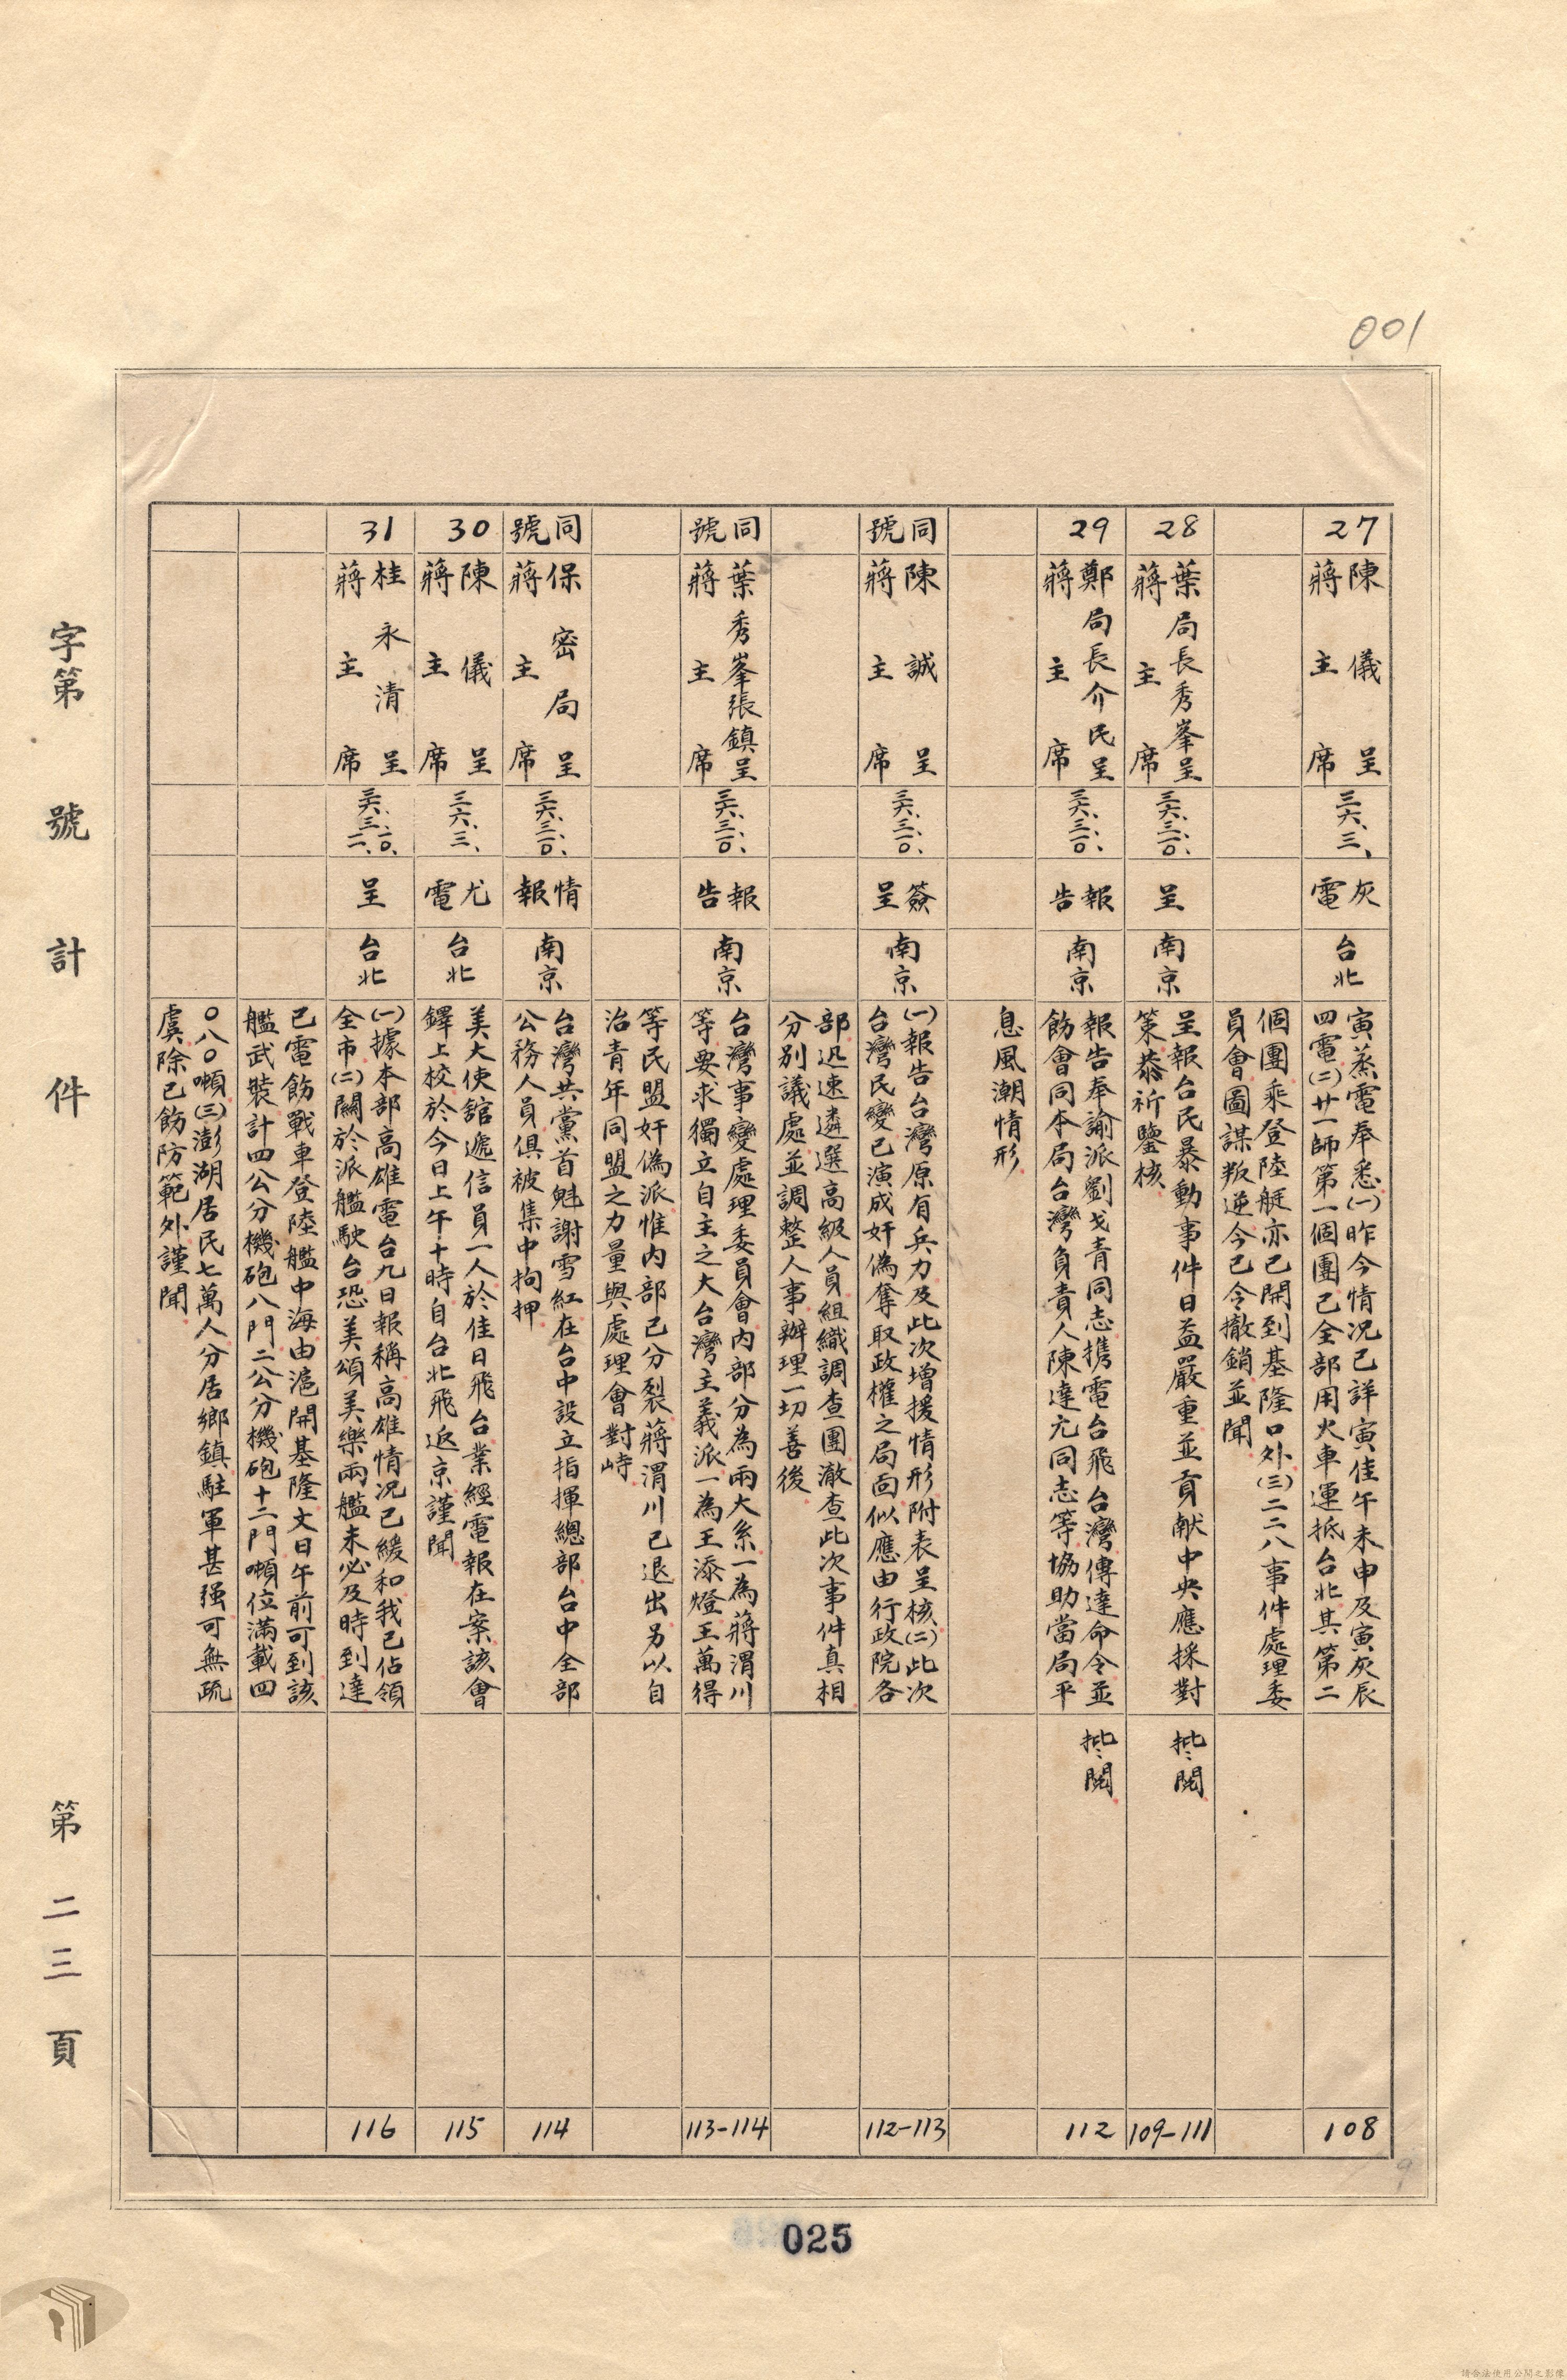 001
27
陳儀呈
蔣主席
三六、三、
灰電
台北
寅蒸電奉悉(一)昨今情况已詳寅佳午未申及寅灰辰
四電(二)廿一師第一個團已全部用火車運抵台北其第二
個團乘登陸艇亦已開到基隆口外(三)二二八事件處理委
員會圖謀叛逆今已令撤銷並聞
108
28
葉局長秀峯呈
蔣主席
三六、三、一〇、
呈
南京
呈報台民暴動事件日益嚴重並貢献中央應採對
策恭祈鑒核
批:閱
109-111
29
鄭局長介民呈
蔣主席
三六、三、一〇、
報告
南京
報告奉諭派劉戈青同志携電台飛台灣傳達命令並
飭會同本局台灣負責人陳達元同志等協助當局平
息風潮情形
批:閱
112
同號
陳誠呈
蔣主席
三六、三、一〇、
簽呈
南京
(一)報告台灣原有兵力及此次增援情形附表呈核(二)此次
台灣民變已演成奸偽奪取政權之局面似應由行政院各
部迅速遴選高級人員組織調查團澈查此次事件真相
分別議處並調整人事辦理一切善後
112-113
同號
葉秀峯張鎮呈
蔣主席
三六、三、一〇、
報告
南京
台灣事變處理委員會內部分為兩大系一為蔣渭川
等要求獨立自主之大台灣主義派一為王添燈王萬得
等民盟奸偽派惟內部已分裂蔣渭川已退出另以自
治青年同盟之力量與處理會對峙
113-114
同號
保密局呈
蔣主席
三六、三、一〇、
情報
南京
台灣共黨首魁謝雪紅在台中設立指揮總部台中全部
公務人員俱被集中拘押
114
30
陳儀呈
蔣主席
三六、三、
尤電
台北
美大使舘遞信員一人於佳日飛台業經電報在案該會
鐸上校於今日上午十時自台北飛返京謹聞
115
31
桂永清呈
蔣主席
三六、三、一〇、二一、
呈
台北
(一)據本部高雄電台九日報稱高雄情况已緩和我已佔領
全市(二)關於派艦駛台恐美頌美樂兩艦未必及時到達
已電飭戰車登陸艦中海由滬開基隆文日午前可到該
艦武裝計四公分機砲八門二公分機砲十二門噸位滿載四
〇八〇噸(三)澎湖居民七萬人分居鄉鎮駐軍甚强可無疏
虞除已飭防範外謹聞
116
字第 號 計 件 第 二三 頁
025
請合法使用公開之影像